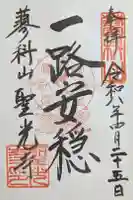 奉拝 令和八年四月二十五日
一路安穏
蓼科山聖光寺